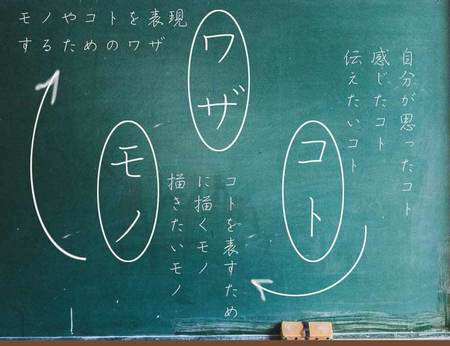 モノやコトを表現
するためのワザ
ワザ
自分が思ったコト
感じたコト
伝えたいコト
コト
コトを表すため
に描くモノ
描きたいモノ
モノ